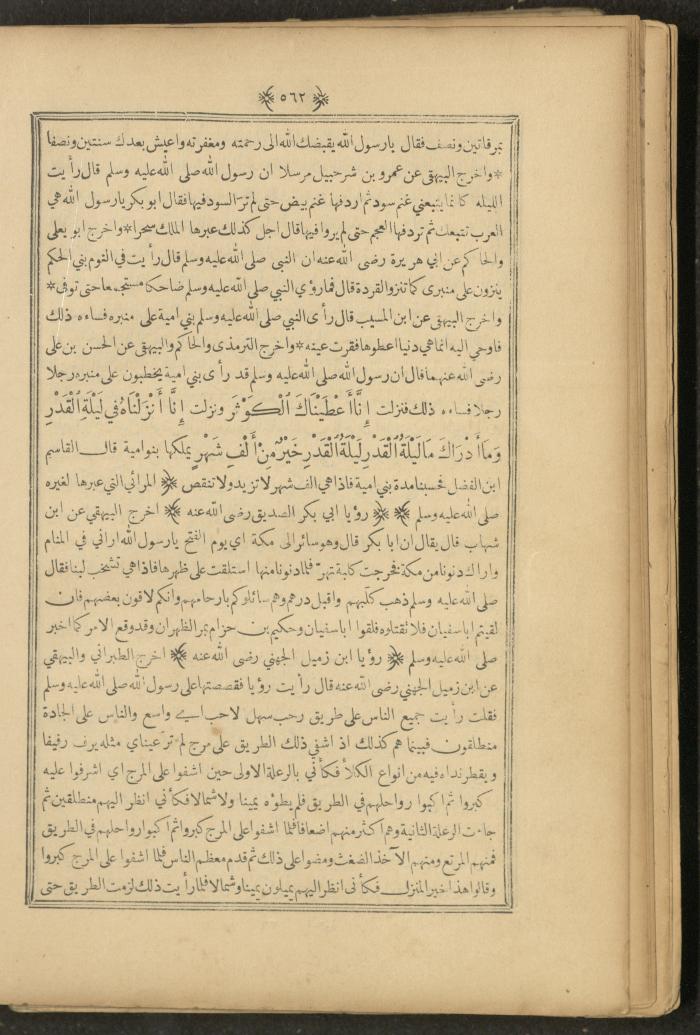 ٥٦٢
بمرقاتين ونصف فقال يارسول الله يقبضك الله الى رحمته ومغفرته واعيش بعدك سنتين ونصفا
*واخرج البيهقي عن عمرو بن شرحبيل مرسلا ان رسول الله صلى الله عليه وسلم قال رأيت
الليلة كانما يتبعني غنم سود ثم اردفها غنم بيض حتى لم تر السود فيها فقال ابو بكر يارسول الله هي
العرب تتبعك ثم تردفها العجم حتى لم يروا فيها قال اجل كذلك عبرها الملك سحرا*واخرج ابو يعلى
والحاكم عن ابي هريرة رضى الله عنه ان النبي صلى الله عليه وسلم قال رأيت في النوم بني الحكم
ينزون على منبرى كما تنزو القردة قال فمارؤي النبي صلى الله عليه وسلم ضاحكا مستجمعا حتى توفى*
واخرج البيهقي عن ابن المسيب قال رأى النبي صلى الله عليه وسلم بني امية على منبره فساءه ذلك
فاوحي اليه انما هي دنيا اعطوها فقرت عينه*واخرج الترمذى والحاكم والبيهقي عن الحسن بن على
رضى الله عنهما قال ان رسول الله صلى الله عليه وسلم قد رأى بني امية يخطبون على منبره رجلا
رجلا فساءه ذلك فنزلت إِنَّا أَعْطَيْنَاكَ الْكَوْثَرَ ونزلت إِنَّا أَنْزَلْنَاهُ فِي لَيْلَةِ الْقَدْرِ
وَمَا أَدْرَاكَ مَا لَيْلَةُ الْقَدْرِ لَيْلَةُ الْقَدْرِ خَيْرٌ مِنْ أَلْفِ شَهْرٍ يملكها بنو امية قال القاسم
ابن الفضل فحسبنا مدة بني امية فاذا هي الف شهر لا تزيد ولا تنقص ﴿ المرائي التي عبرها لغيره
صلى الله عليه وسلم ﴾ ﴿ رؤيا ابي بكر الصديق رضى الله عنه ﴾ اخرج البيهقي عن ابن
شهاب قال يقال ان ابا بكر قال وهو سائر الى مكة اي يوم الفتح يارسول الله اراني في المنام
واراك دنونا من مكة فخرجت كلبة تهرّ فلما دنونا منها استلقت على ظهرها فاذا هي تشخب لبنا فقال
صلى الله عليه وسلم ذهب كلبهم واقبل درهم وهم سائلوكم بارحامهم وانكم لاقون بعضهم فان
لقيتم ابا سفيان فلا تقتلوه فلقوا ابا سفيان وحكيم بن حزام بمر الظهران وقد وقع الامر كما اخبر
صلى الله عليه وسلم ﴿ رؤيا ابن زميل الجهني رضى الله عنه ﴾ اخرج الطبراني والبيهقي
عن ابن زميل الجهني رضى الله عنه قال رأيت رؤيا فقصصتها على رسول الله صلى الله عليه وسلم
فقلت رأيت جميع الناس على طريق رحب سهل لاحب اي واسع والناس على الجادة
منطلقون فبينما هم كذلك اذ اشفي ذلك الطريق على مرج لم تر عيناي مثله يرف رفيفا
ويقطر نداءه فيه من انواع الكلأ فكأني بالرعلة الاولى حين اشفوا على المرج اي اشرفوا عليه
كبروا ثم اكبوا رواحلهم في الطريق فلم يظلموه يمينا ولا شمالا فكأني انظر اليهم منطلقين ثم
جاءت الرعلة الثانية وهم اكثر منهم اضعافا فلما اشفوا على المرج كبروا ثم اكبوا رواحلهم في الطريق
فمنهم المرتع ومنهم الآخذ الضغث ومضوا على ذلك ثم قدم معظم الناس فلما اشفوا على المرج كبروا
وقالوا هذا خير المنزل فكأني انظر اليهم يميلون يمينا وشمالا فلما رأيت ذلك لزمت الطريق حتى